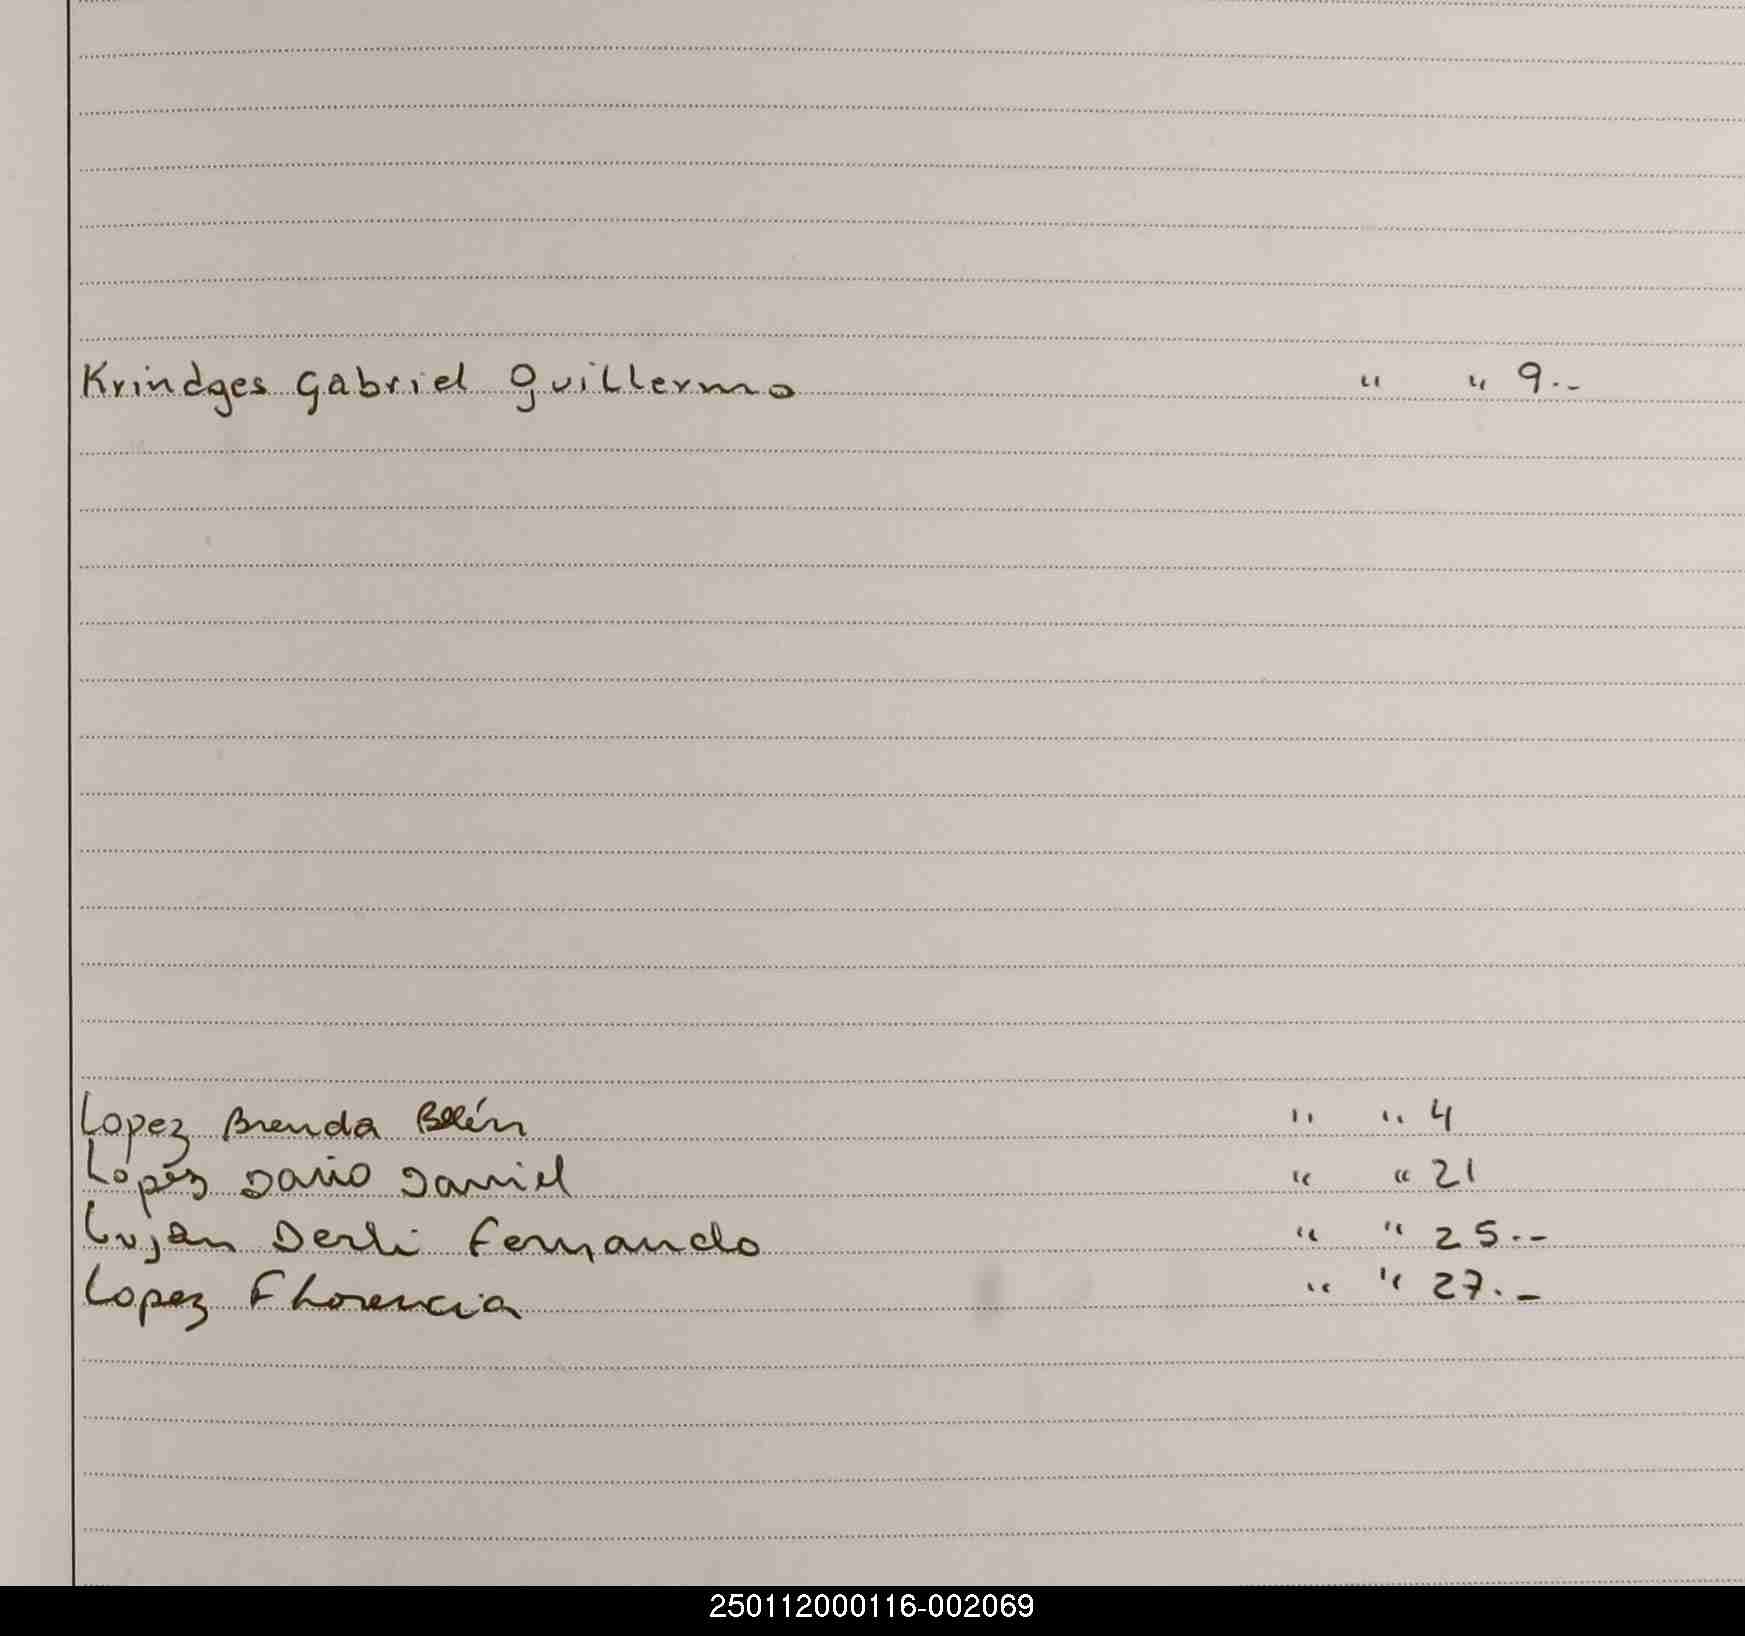 Krindges Gabriel Guillermo " " 9.-
Lopez Brenda Belén " " 4
Lopez Dario Daniel " " 21
Luján Derli Fernando " " 25.-
Lopez Florencia " " 27.-
250112000116-002069